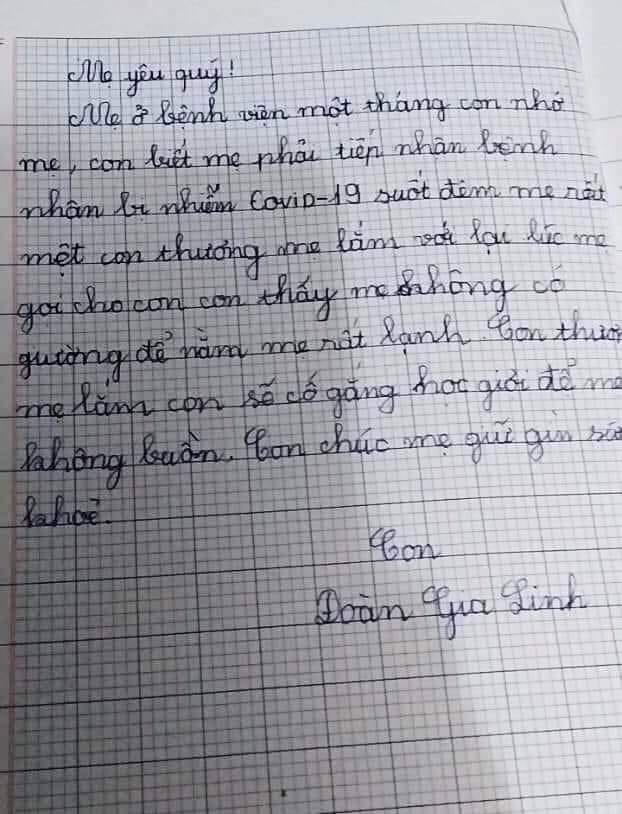 Mẹ yêu quý!
Mẹ ở bệnh viện một tháng con nhớ
mẹ, con biết mẹ phải tiếp nhận bệnh
nhân bị nhiễm Covid-19 suốt đêm mẹ rất
mệt con thương mẹ lắm với lại lúc mẹ
gọi cho con con thấy mẹ không có
guường để nằm mẹ rất lạnh. Con thươ
mẹ lắm con sẽ cố gắng học giỏi để mẹ
không buồn. Con chúc mẹ guữ gìn sứ
khoẻ.
Con
Đoàn Gia Linh